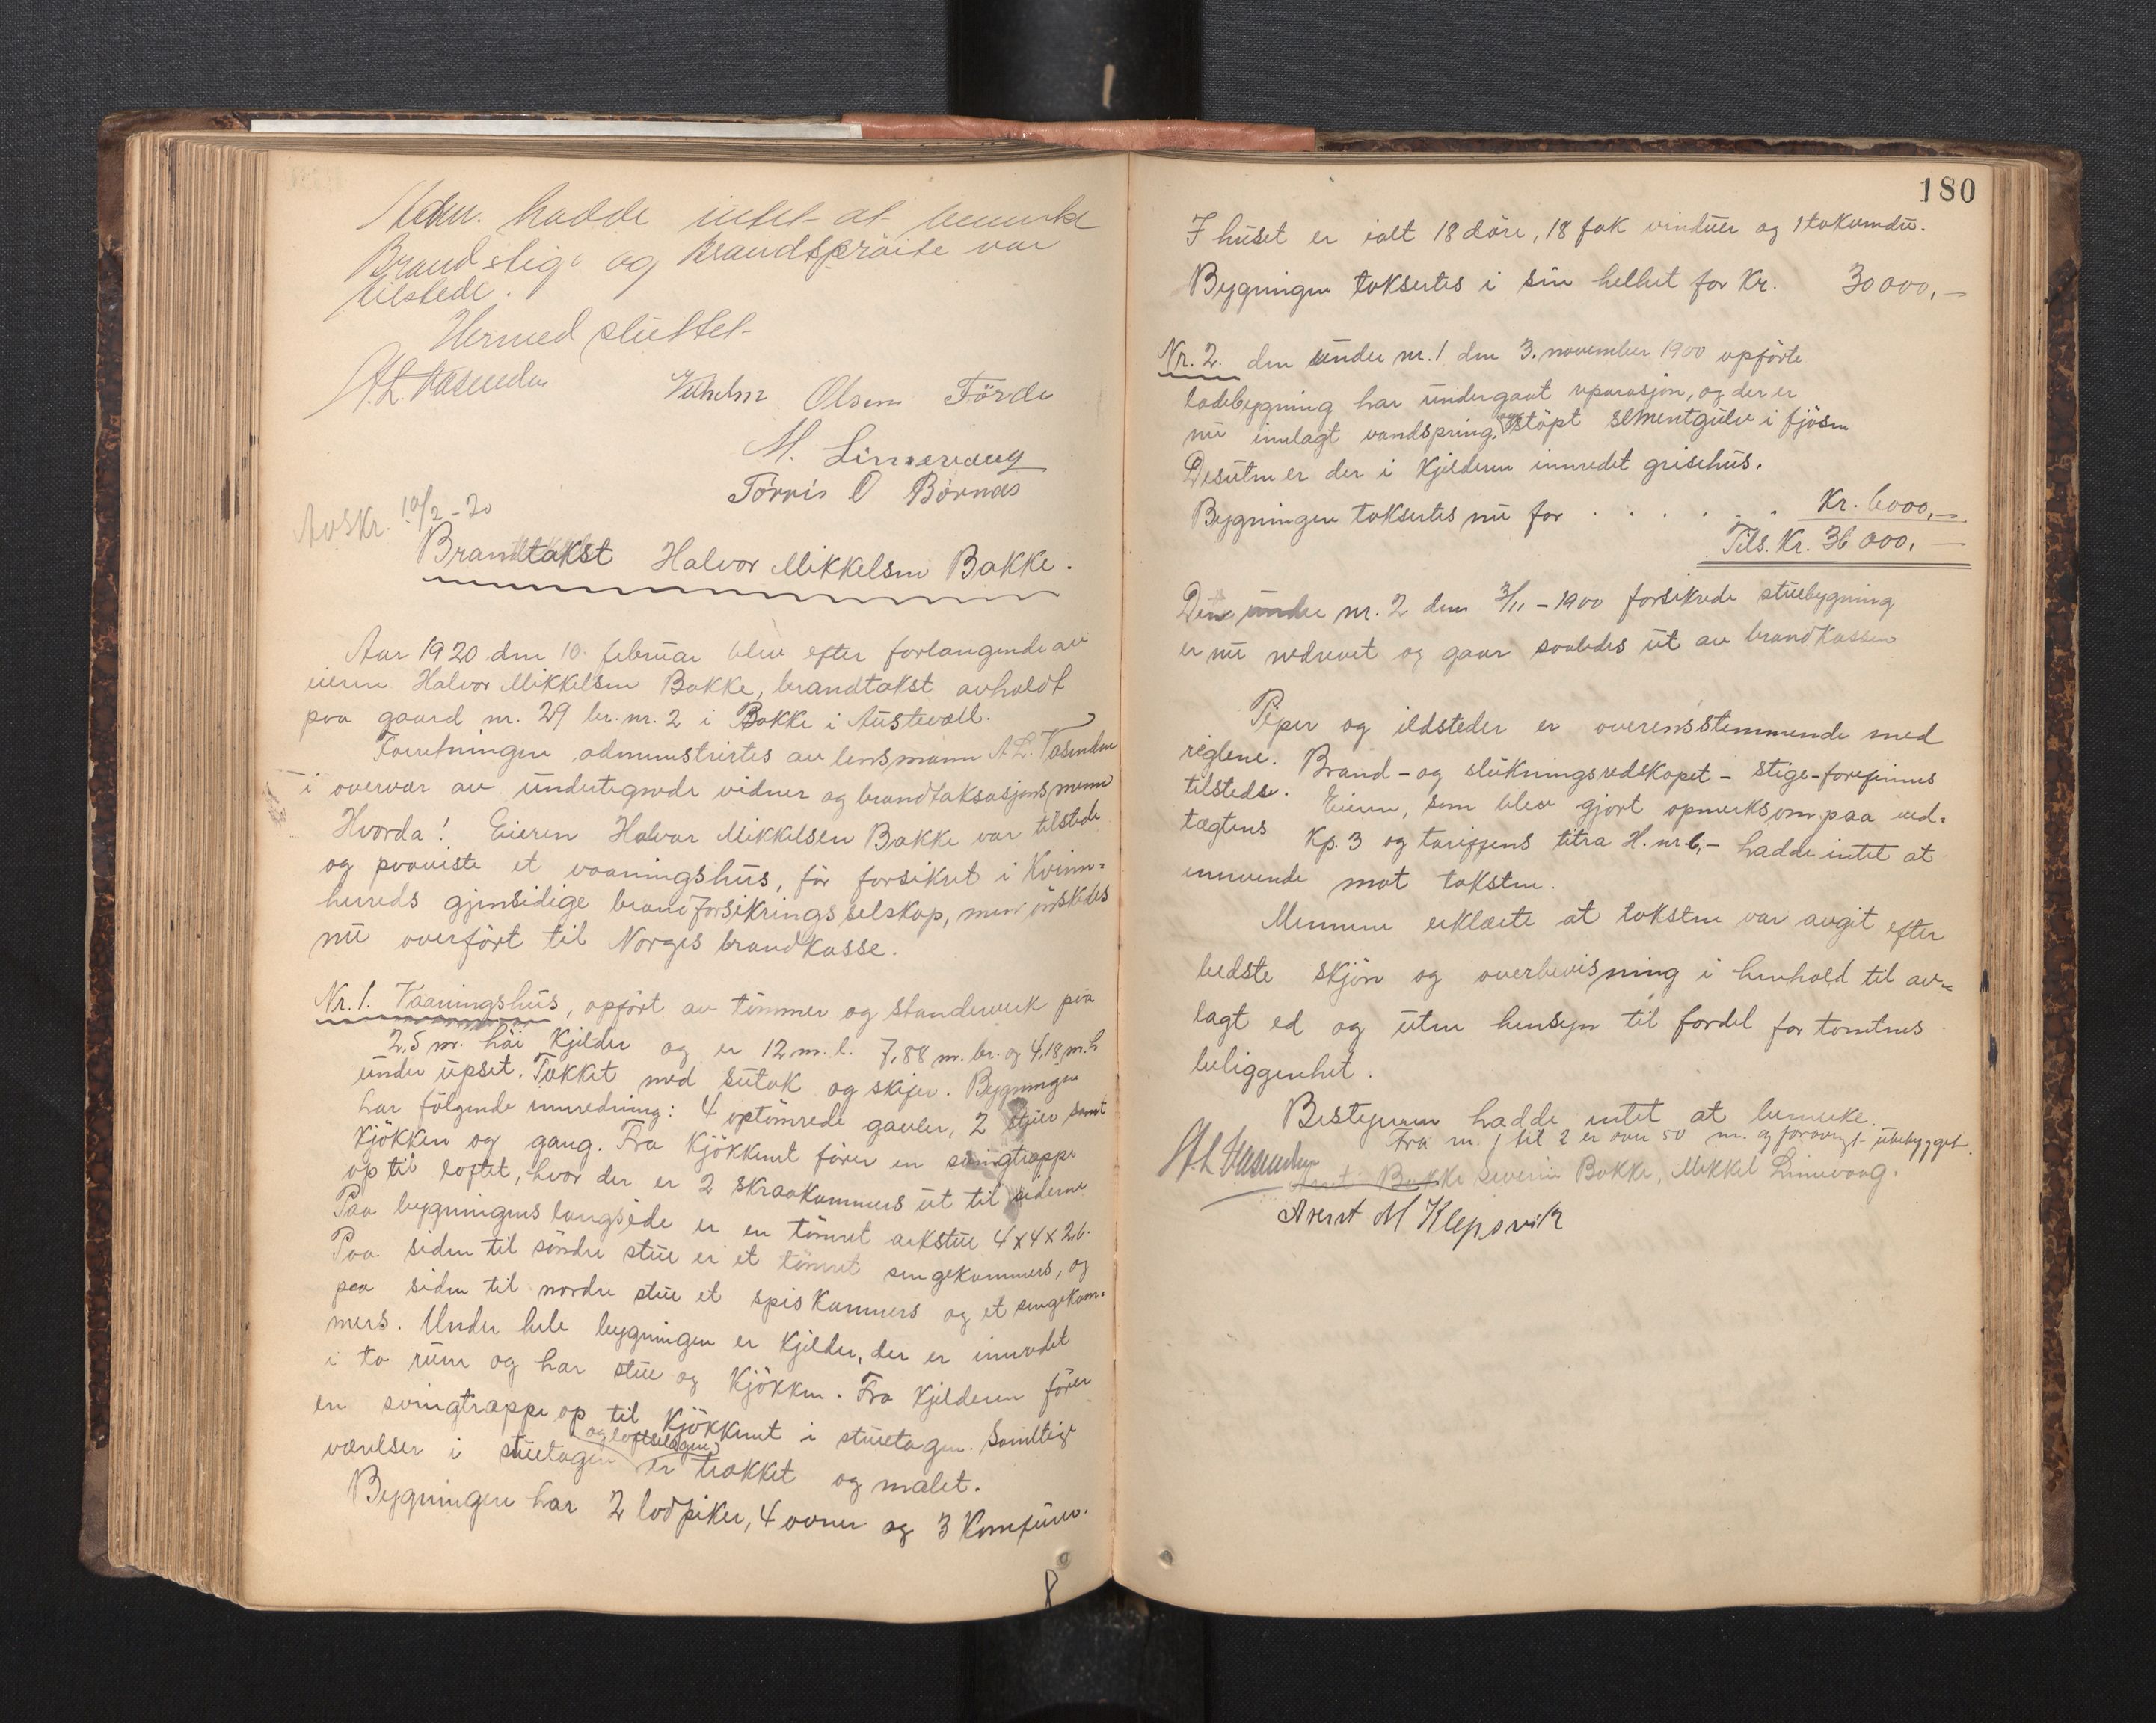 hadde intet at bemerke
Brandstige og Brandsprøite var
tilstede.
Hermed sluttet
A.L. Vasenden
Vilhelm Olsen Förde
M. Linnevaag
Törris O Börnas
Avskr. 10/2-20
Brandtakst Halvor Mikkelsen Bakke.
Aar 1920 den 10. februar blev efter forlangende av
eieren Halvor Mikkelsen Bakke, brandtakst avholdt
paa gaard nr. 29 br. nr. 2 i Bakke i Austevoll.
Forretningen administrertes av lensmann A.L. Vasenden
i overvær av undertegnede vidner og brandtaksasjonsmenn
Hvorda! Eieren Halvor Mikkelsen Bakke var tilstede
og paaviste et vaaningshus, før forsikret i Kvinn=
hereds gjensidige brandforsikringsselskap, men önskedes
nu overført til Norges brandkasse.
Nr. 1. Vaaningshus, opfört av tömmer og standerverk paa
2,5 m. höi Kjelder og er 12 m. l. 7,88 m. br. og 4,18 m. h
under upset. Tækket med sutak og skifer. Bygningen
har fölgende innredning: 4 optömrede gavler, 2 stuer samt
Kjökken og gang. Fra Kjökkenet förer en svingtrappe
op til loftet, hvor der er 2 skraakammers ut til siderne
Paa bygningens langside er en tömret arkstue 4x4x2,6.
Paa siden til söndre stue er et tömret sengekammers, og
paa siden til nordre stue et spiskammers og et sengekam=
mers. Under hele bygningen er Kjelder, der er innredet
i to rum og har stue og Kjökken. Fra Kjelderen förer
en svingtrappe op til Kjökkenet i stuetagen. Samtlige
værelser i stuetagen og loftsetagen er trækket og malet.
Bygningen har 2 lodpiker, 4 ovner og 3 Komfürer.
180
I huset er ialt 18 döre, 18 fak vinduer og 1 takvindu.
Bygningen taksertes i sin helhet for Kr. 30000,-
Nr. 2. den under nr. 1 den 3. november 1900 opförte
ladebygning har undergaat reparasjon, og der er
nu innlagt vandspring, og stöpt sementgulv i fjösen
Desuten er der i Kjelderen innredet grisehus.
Bygningen taksertes nu for . . . . . . Kr. 6000,-
Tils. Kr. 36000,-
Den under nr. 2 den 3/11-1900 forsikrede stuebygning
er nu nedrevet og gaar saaledes ut av brandkassen
Piper og ildsteder er overensstemmende med
reglene. Brand- og slukningsredskapet - stige - forefinnes
tilstede. Eieren, som blev gjort opmerksom paa ved=
tægtens Kp. 3 og tariffens litra H. nr. 6,- hadde intet at
innvende mot taksten.
Mennene erklærte at taksten var avgit efter
bedste skjön og overbevisning i henhold til av=
lagt ed og uten hensyn til fordel for tomtens
beliggenhet.
Bestyreren hadde intet at bemerke.
Fra nr. 1 til 2 er over 50 m. og forövrigt ubebygget.
A L Vasenden
Bakke Severin Bakke, Mikkel Linnevaag.
Arent M Klepsvik